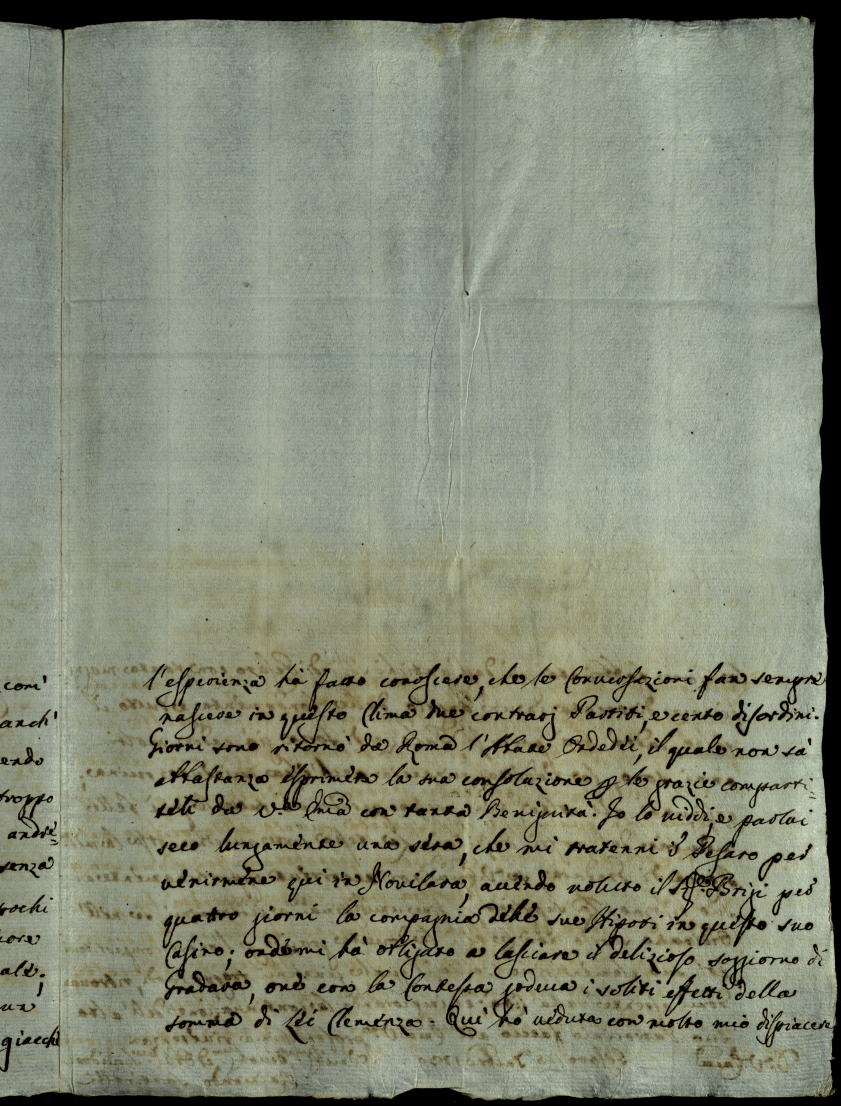 com'
anch'
endo
troppo
andre=
senza
rochi
ore
ale;
un
giacchè
l'esperienza hà fatto conoscere, che le Convocazioni fan sempre
nascere in questo Clima due contrarj Partiti, e cento disordini.
Giorni sono ritornò da Roma l'Abate Ondedei, il quale non sà
abbastanza esprimere la sua consolazione p le grazie comparti=
teli da V.ra Em̃a con tanta Benignità. Io lo viddi, e parlai
seco lungamente una sera, che mi trattenni ĩ Pesaro per
venirmene qui in Novilara, avendo voluto il Brizi per
quattro giorni la compagnia delle sue Nipoti in questo suo
Casino; onde mi hà obligato a lasciare il delizioso soggiorno di
Gradara, ove con la Contessa godeva i soliti effetti della
somma di Lei Clemenza. Quì hò veduta con molto mio dispiacere